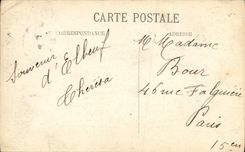 CARTE POSTALE
CORRESPONDANCE
ADRESSE
Souvenir
d'Elbeuf
Theresa
M Madame
Bour
46 rue Falguière
Paris
15em